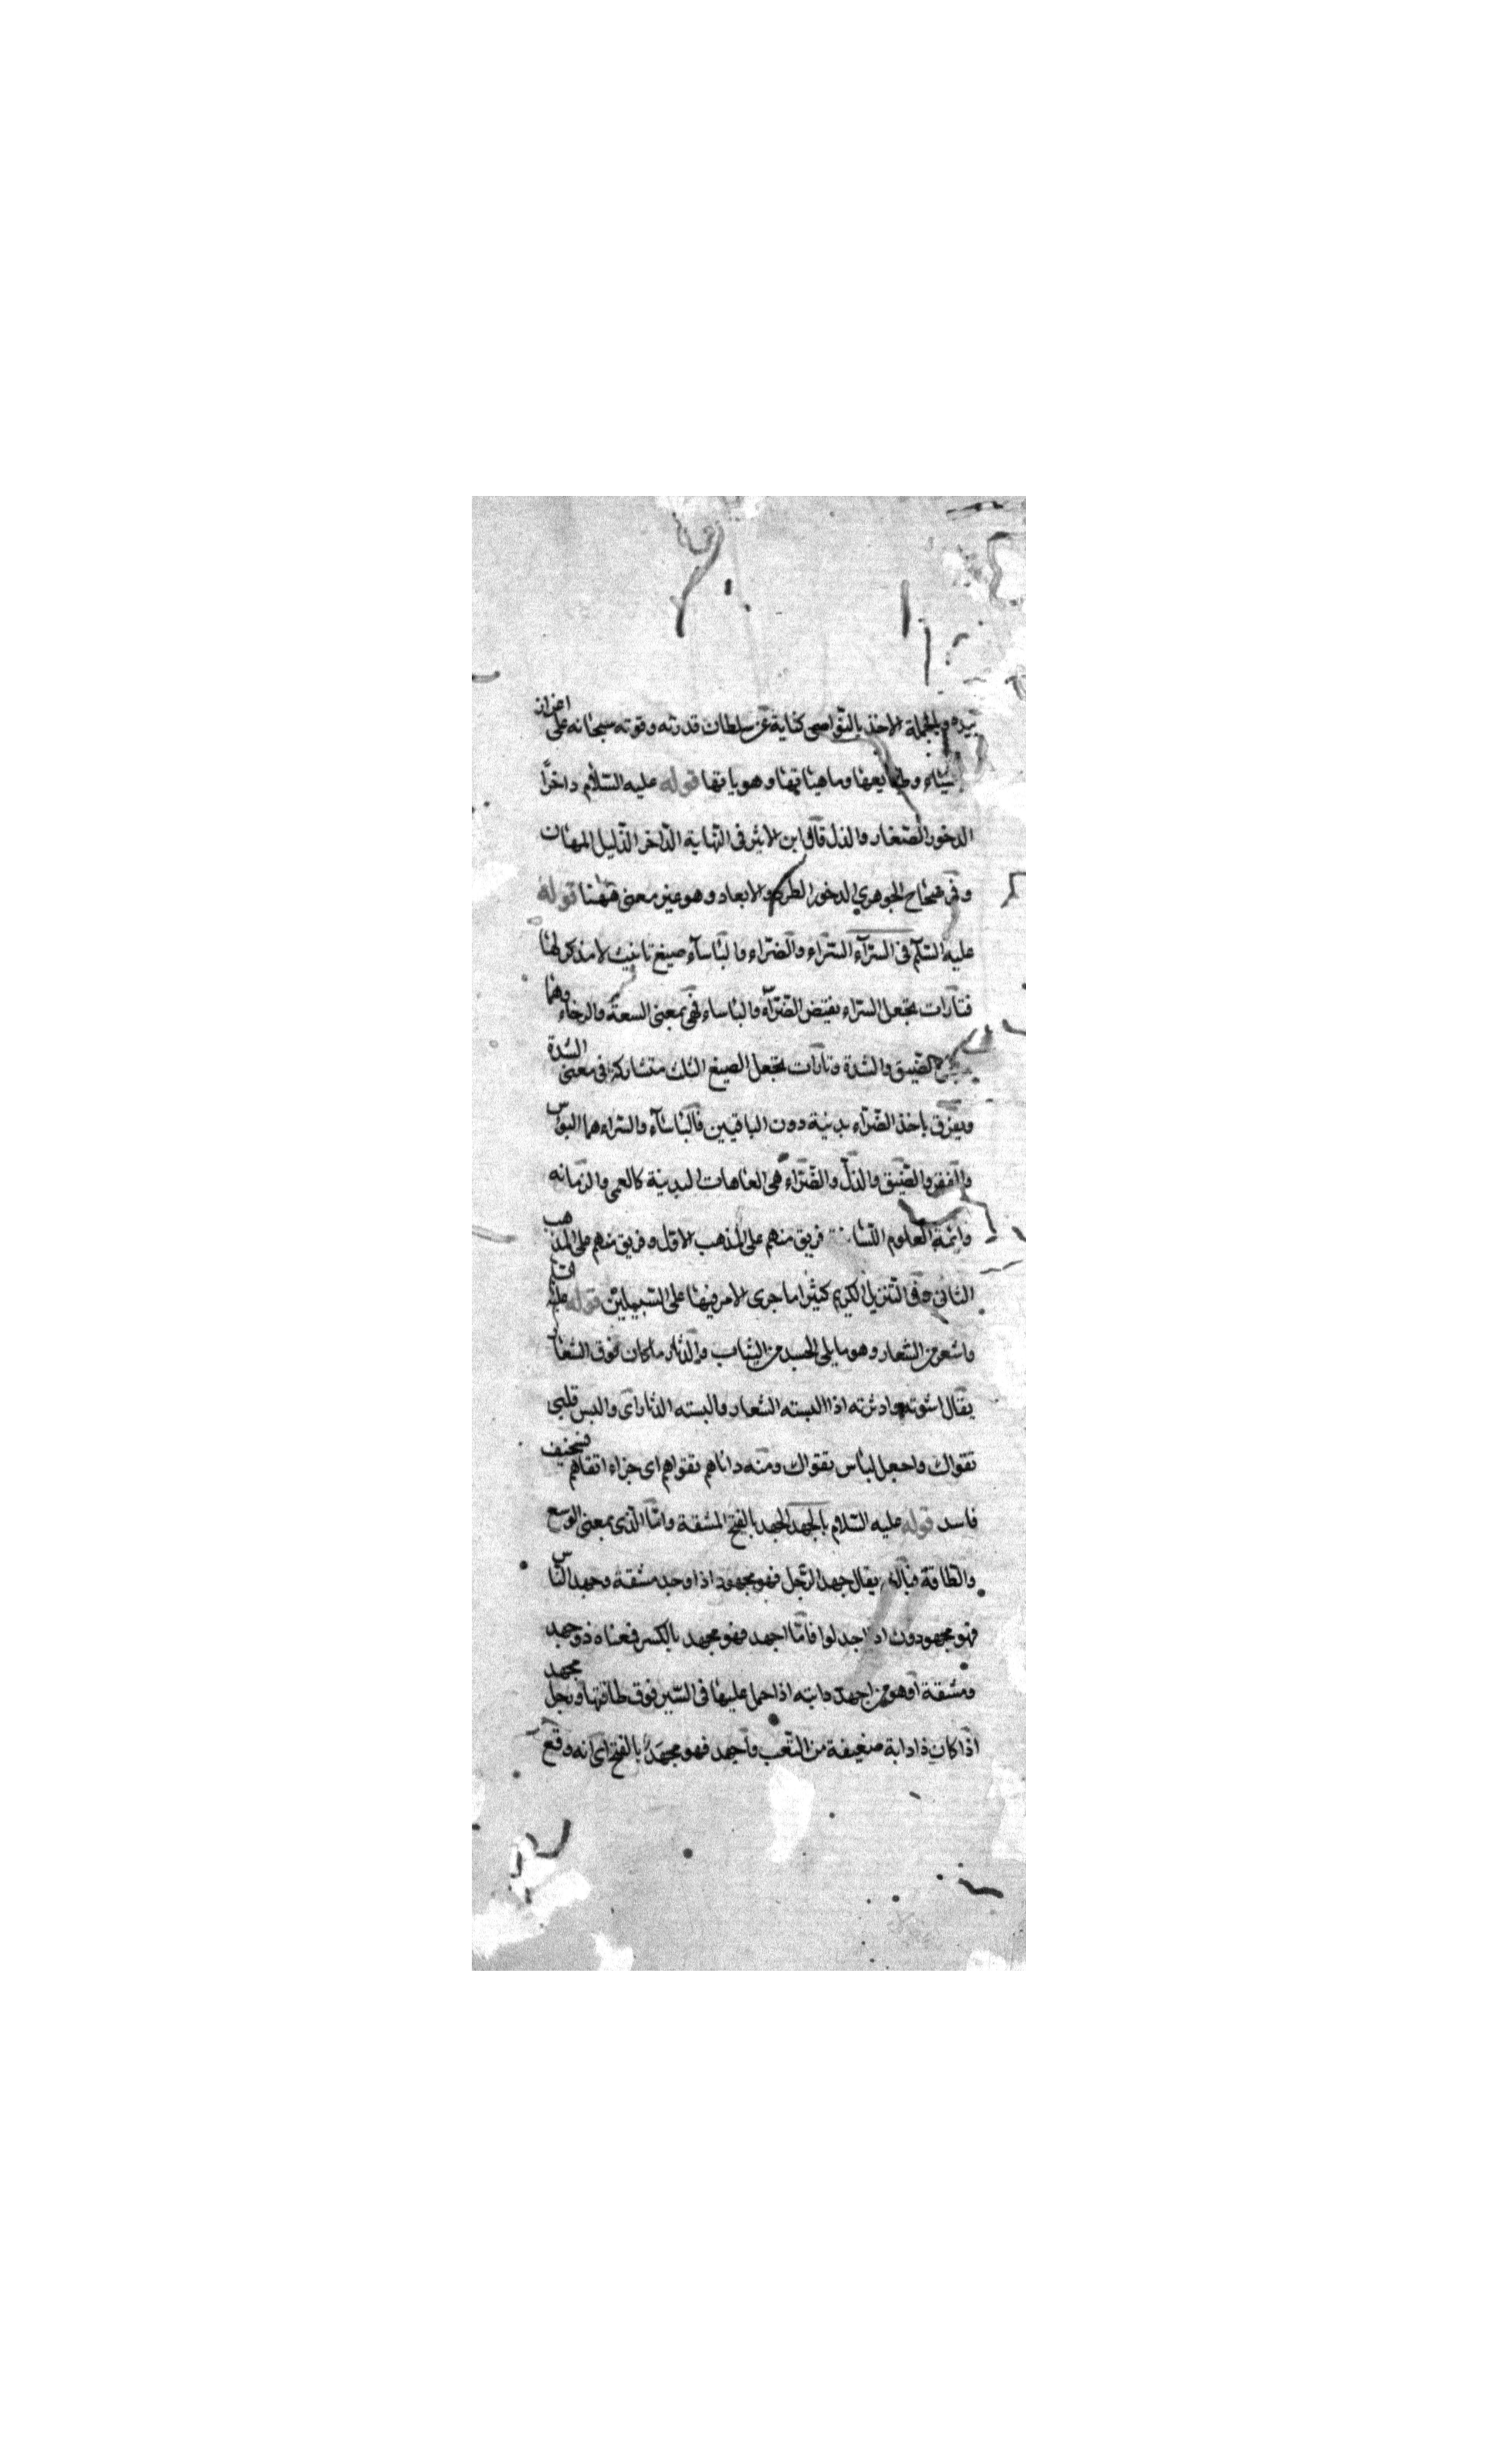 بيده وبالجملة الاخذ بالنواصى كناية عن سلطان قدرته وقوته سبحانه على
وطبايعها وماهياتها وهوياتها قوله عليه السلام داخرا
الدخور الصغار والذل قال ابن الاثير فى النهاية الداخر الذليل المهان
وفى صحاح الجوهرى الدخور الطرد والابعاد وهو غير معنى ههنا قوله
عليه السلم فى السرآء السراء والضراء والباسآء صيغ تانيث لا مذكر لها
فتارات تجعل السراء نقيض الضرآء والباساء فهى بمعنى السعة والرخاء وهما
الضيق والشدة وتارات تجعل الصيغ الثلث متشاركة فى معنى الشدة
ويفرق باخذ الضرآء بدنية دون الباقيين فالباساء والسراء هما البوس
والفقر والضيق والذل والضراء هى العاهات البدنية كالعمى والزمانه
وائمة العلوم فريق منهم على المذهب الاول وفريق منهم على المذهب
الثانى وفى التنزيل الكريم كثيرا ما جرى الامر فيها على السبيلين قوله عليه
واشعر من الشعار وهو ما يلى الجسد من الثياب والدثار ما كان فوق الشعار
يقال وادثرته اذا البسته الشعار والبسته الدثار اى والبس قلبى
تقواك واجعل لباس تقواك ومنه داناهم تقواهم اى جزاء اتقاهم
فاسد قوله عليه السلام بالجهد الجهد بالفتح المشقة واما الذى بمعنى الوسع
والطاقة يقال جهد الرجل فهو مجهود اذا وجد مشقة وجهد الناس
فهو مجهودون اذا اجدلوا فاما اجهد فهو مجهد بالكسر فمعناه ذو جهد
ومشقة اوهو من اجهد دابته اذا حمل عليها فى السير فوق طاقتها ورجل مجهد
اذا كان ذا دابة ضعيفة من التعب واجهد فهو مجهد بالفتح اى انه وقع